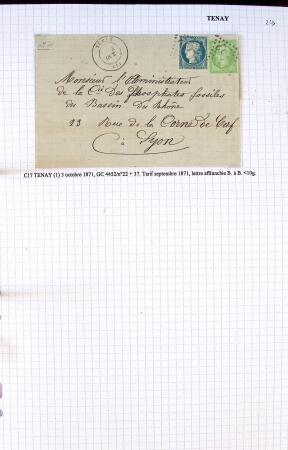 TENAY
Monsieur l'Administrateur
de la Cie des Phosphates fossiles
du Bassin du Rhône
23 Rue de la Corne de Cerf
à Lyon
C17 TENAY (1) 3 octobre 1871, GC 4452/n°22 + 37. Tarif septembre 1871, lettre affranchie B. à B. <10g.